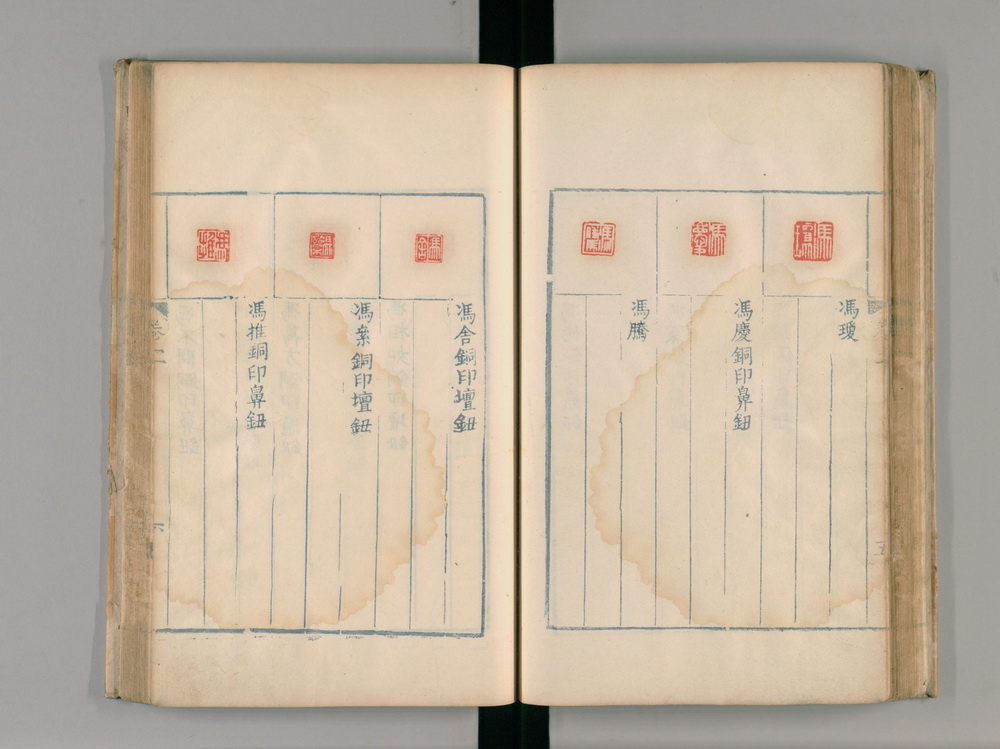 馮瓊
馮慶銅印鼻鈕
馮騰
馮舍銅印壇鈕
馮泰銅印壇鈕
馮推銅印鼻鈕
卷二
六
五